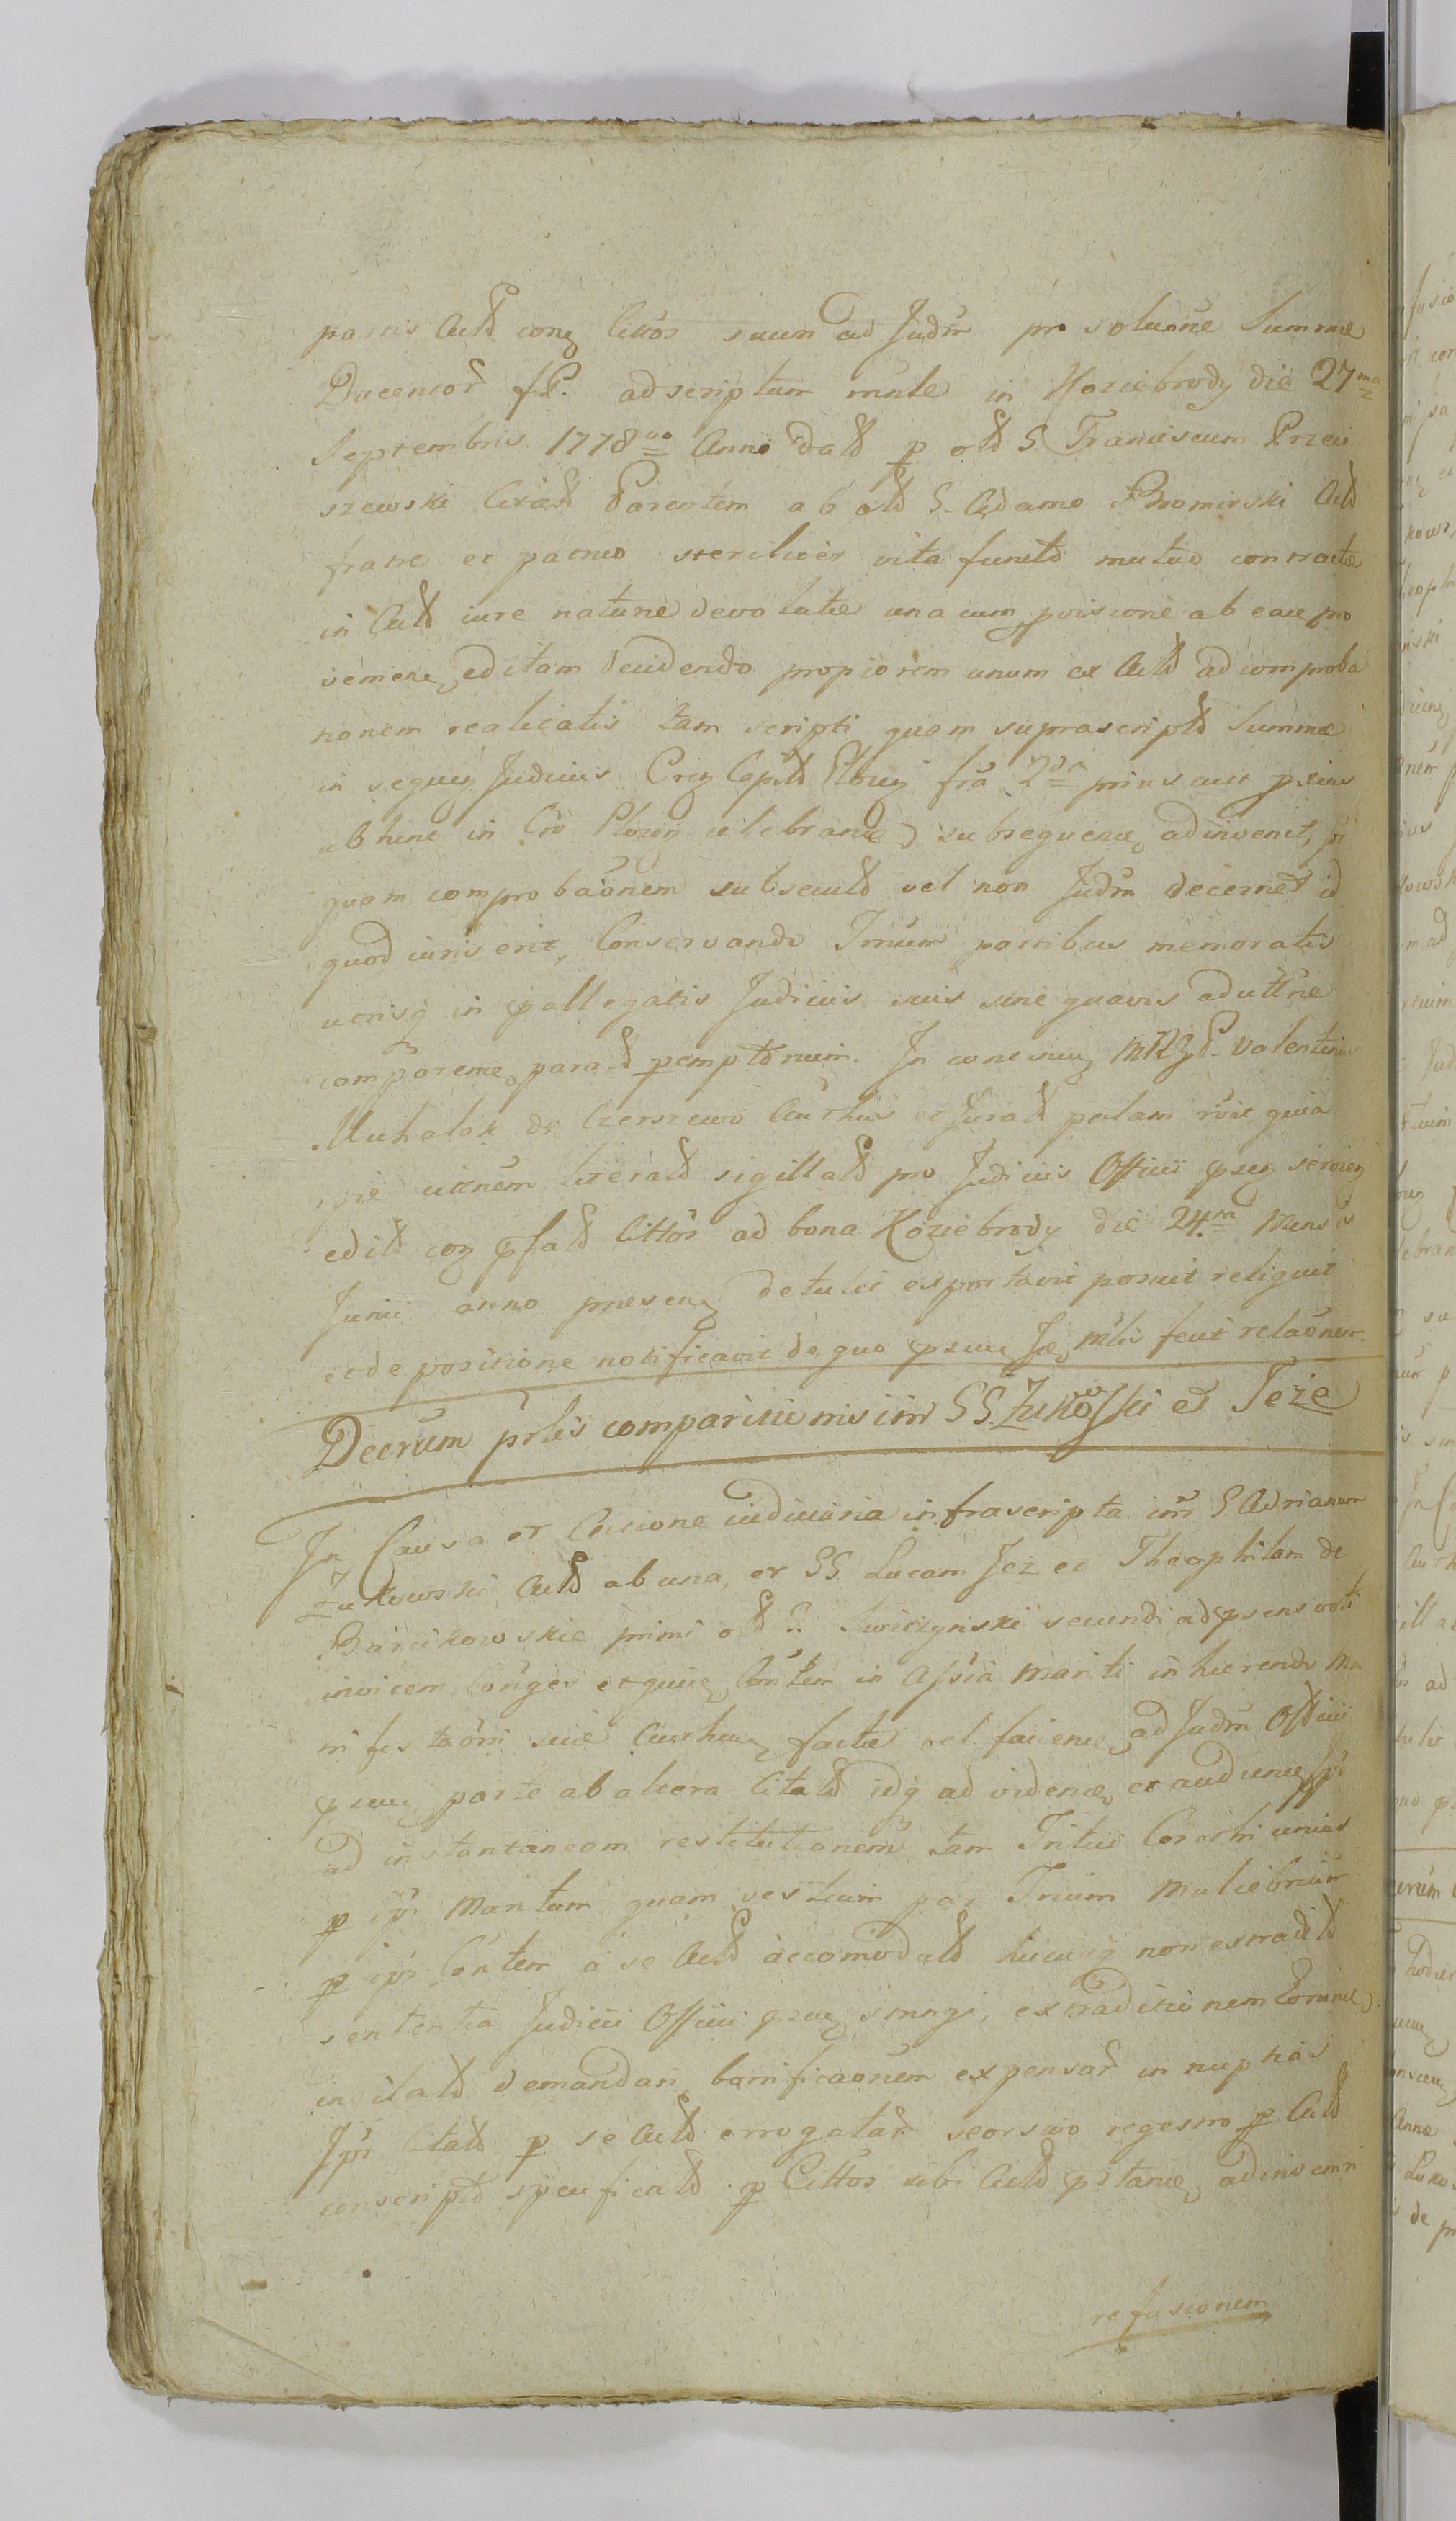 partis Actt conq Cittos suum ad Judm pro solutione Summæ
Ducentor fP. ad scriptum mnle in Koziebrody die 27ma
Septembris 1778vo Anno datt p oltt G. Franciscum Przeci
szewski Citatt Parentem ab oltt G. Adamo Bromirski Actt
fratre et patruo steriliter vita functo mutuo contractæ
in Actt iure naturæ devolutæ una cum pvisione ab eaue pro
veniene editam decidendo propiorem unum ex Actt ad comproba
nonem realitatis tam scripti quam suprascriptt Summæ
in sequen Judiciis Cnz Captt Ploceñ fra 2da prius aut pxius
abhinc in Cro Ploceñ celebrañ subsequeñ adinvenit, pt
quam comprobaonem subsecutt vel non Judm decernet id
quod iuris erit, Conservando Tmum partibus memoratis
utrisq in pallegatis Judiciis suis sine quavis adcttne
comparene paratt pemptorium. In contesum MRZ P. Valentinus
Michalak de Czerszewo Authus et Juratt palam rvit quia
ipse citnem literatt sigillatt pro Judiciis Officii psen servien
editt conq pfatt Cittos ad bona Koziebrody die 24ta Mensis
Junii anno presenq detulit exportavit posuit reliquit
et de positione notificavit de quo psen Je mlis fecit relaonem.
Decrum prlis comparitionis inr GG. Żukowski et Jeże
In Causa et Actione iudiciaria infrascripta inr G Adrianum
Żukowski Actt ab una, et GG Lucam Jeż et Theophilam de
Barcikowskie primi oltt G. Swiezynski secundi ad psens voti
invicem Conges et quidem Contem in Assia mariti inhærendo ma
nifestaoni suæ Authen factæ vel faciene, ad Judm Officii
psen parte ab altera Citatt idq ad videne, et audiene ssp
ad instantaneam restitutionem tam Tritici Corethi unius
p ipm Maritum quam vestium par Trium muliebrium
p ipm Contem a se Actt accomodatt hucusq non extraditt
sententia Judicii Officii psen svmngi, extraditionem Eorunde
in citatt demandari, bonificaonem expensar in nuptias
Ipor Citatt p se Actt errogatar seorsivo regestro p Actt
conscriptt specificatt p Cittos sibi Actt pstane, adinveniri
refusionem